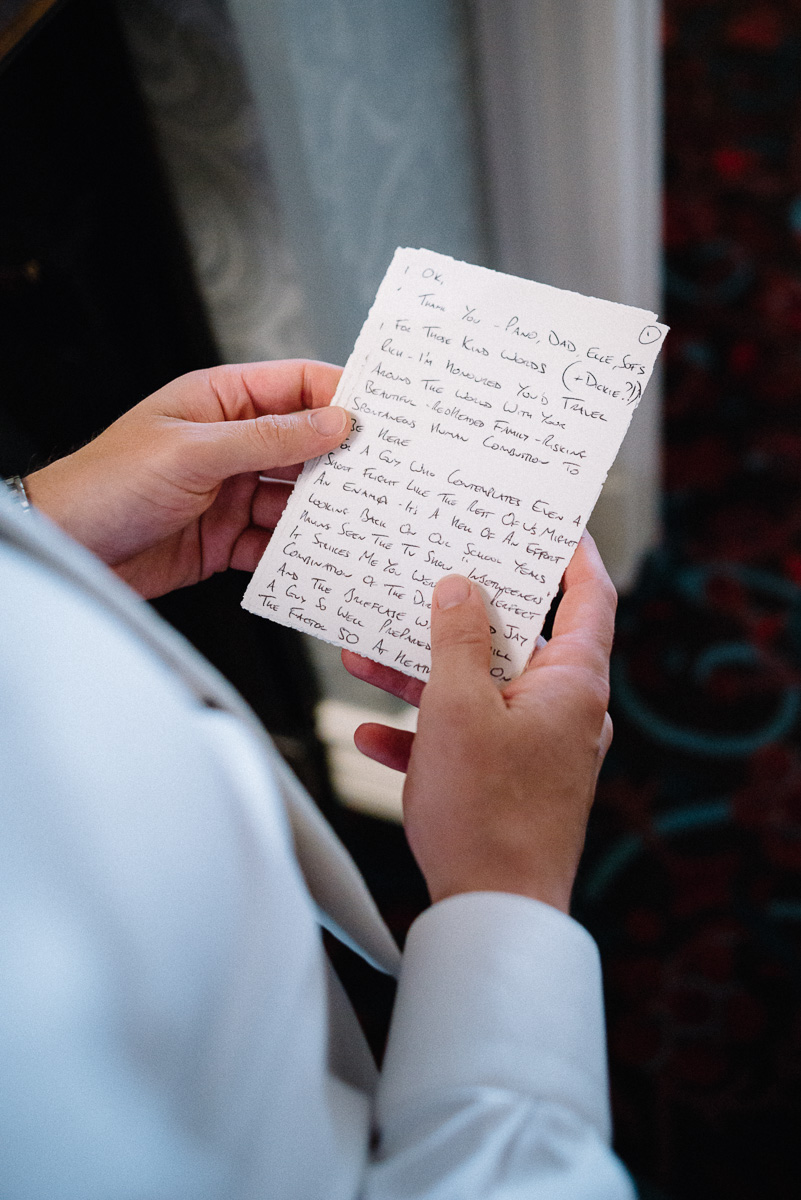 OK,
①
THANK YOU - PANO, DAD, ELLE, SOFS
FOR THOSE KIND WORDS (+ DICKIE?!)
RICH - I'M HONOURED YOU'D TRAVEL
AROUND THE WORLD WITH YOUR
BEAUTIFUL REDHEADED FAMILY - RISKING
SPONTANEOUS HUMAN COMBUSTION TO
BE HERE
A GUY WHO CONTEMPLATES EVEN A
SHORT FLIGHT LIKE THE REST OF US MIGHT
AN ENAMA - IT'S A HELL OF AN EFFORT
LOOKING BACK ON OUR SCHOOL YEARS
HAVING SEEN THE TV SHOW "INBETWEENERS"
IT STRIKES ME YOU WERE
COMBINATION OF THE JAY
AND THE BRIEFCASE
A GUY SO WELL PREPARED
THE FACTOR 50 AT ON